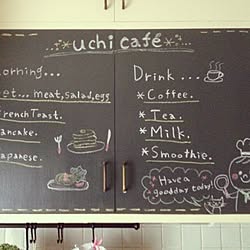 ...*uchi café*...
orning...
et... meat,salad,egg
FrenchToast.
ancake.
apanese.
Drink...
*Coffee.
*Tea.
*Milk.
*Smoothie.
Have a
goodday today!